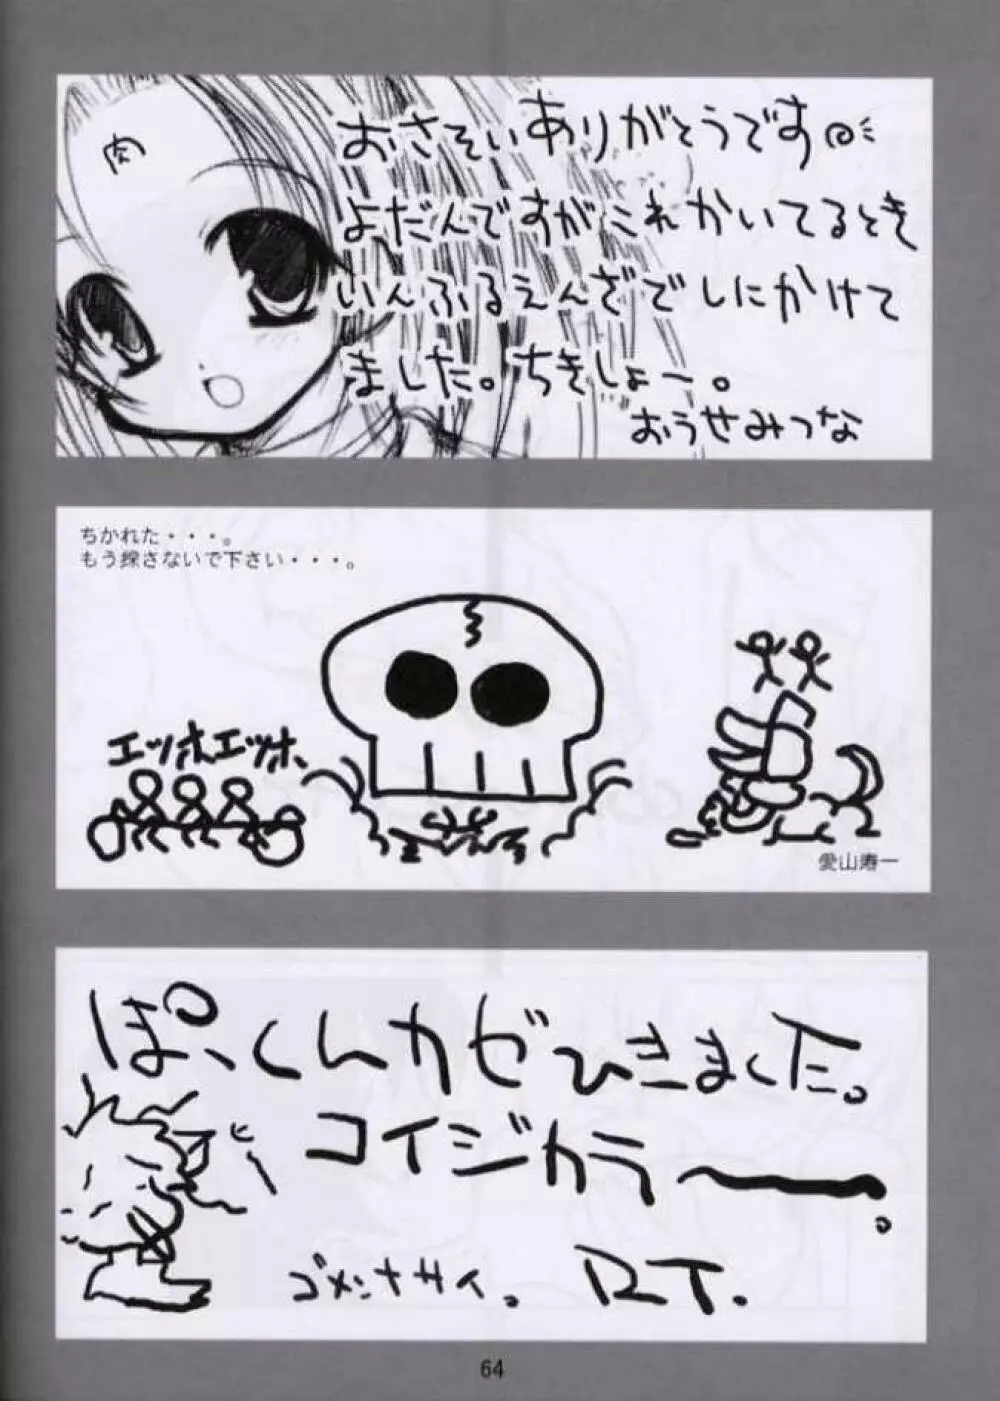 肉
おさそいありがとうです
よだんですがこれかいてるとき
いんふるえんざでしにかけて
ました。ちきしょー。
おうせみつな
ちかれた・・・。
もう探さないで下さい・・・。
エッホエッホ、
愛山寿一
ぽっくんカゼひきました。
コイジカラーーー。
ゴメンナサイ。 RT.
64